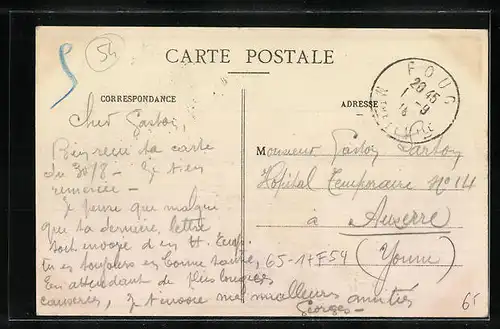 54
CARTE POSTALE
CORRESPONDANCE
ADRESSE
FOUG
20 45
1 -9
Cher Gaston,
Bien reçu ta carte
du 30/8 - Je t'en
remercie -
Je pense que malgré
que ta dernière lettre
soit envoyé d'en
tu es toujours en bonne santé,
En attendant de plus longues
causeries, je t'envoie mes meilleures amitiés
Georges -
Monsieur Gaston
Hôpital Temporaire No 14
à Auxerre
(Yonne)
65-17F54
65